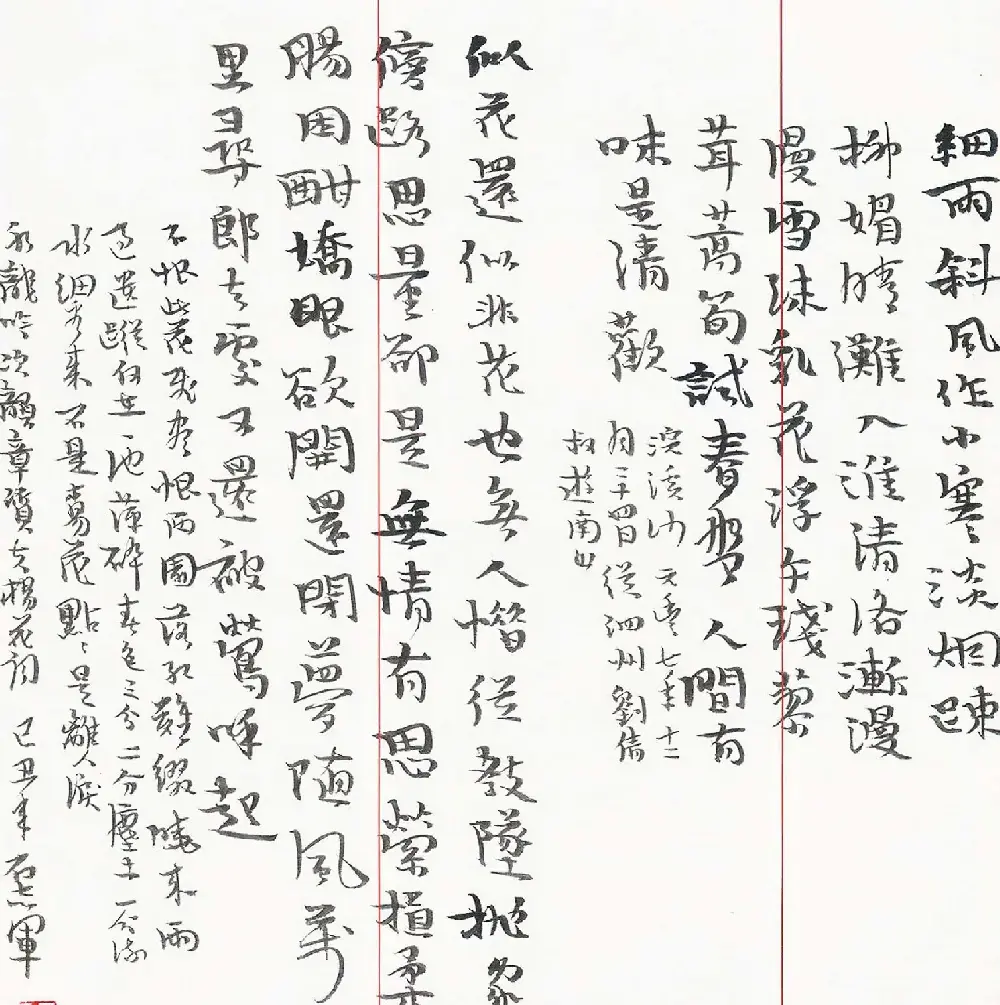 細雨斜風作小寒淡烟疎
柳媚晴灘入淮清洛漸漫
漫雪沫乳花浮午琖蓼
茸蒿筍試春盤人間有
味是清歡
浣溪沙 元豐七年十二
月二十四日從泗州劉倩
叔遊南山
似花還似非花也無人惜從教墜拋家
傍路思量卻是無情有思縈損柔
腸困酣嬌眼欲開還閉夢隨風萬
里尋郎去處又還被鶯呼起
不恨此花飛盡恨西園落紅難綴曉來雨
過遺蹤何在一池萍碎春色三分二分塵土一分流
水細看來不是楊花點點是離人淚
水龍吟次韻章質夫楊花詞 己丑年 軍